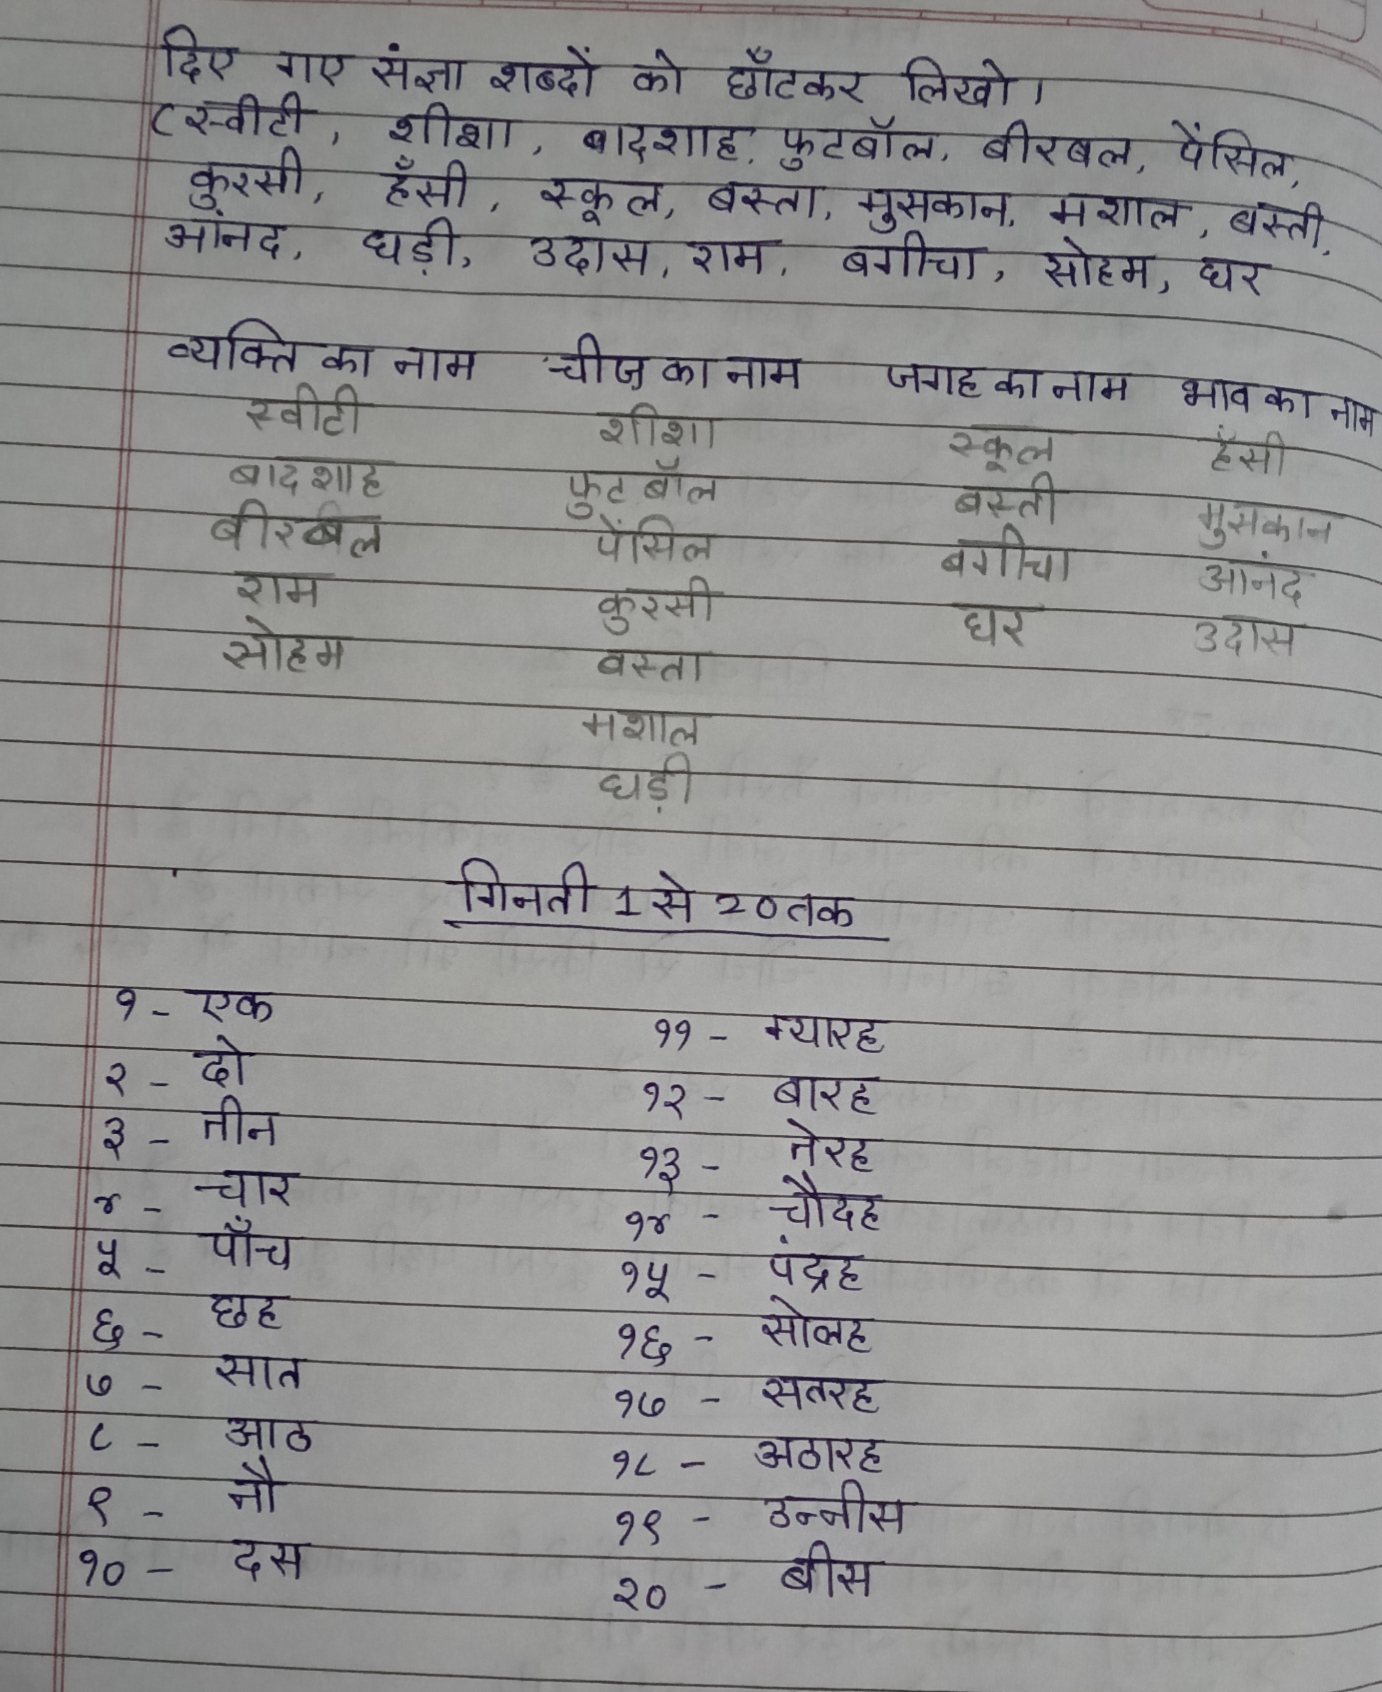 दिए गए संज्ञा शब्दों को छाँटकर लिखो।
(स्वीटी, शीशा, बादशाह, फुटबॉल, बीरबल, पेंसिल,
कुरसी, हँसी, स्कूल, बस्ता, मुसकान, मशाल, बस्ती,
आंनद, घड़ी, उदास, राम, बगीचा, सोहम, घर
व्यक्ति का नाम चीज़ का नाम जगह का नाम भाव का नाम
स्वीटी शीशा स्कूल हँसी
बादशाह फुटबॉल बस्ती मुसकान
बीरबल पेंसिल बगीचा आनंद
राम कुरसी घर उदास
सोहम बस्ता
मशाल
घड़ी
गिनती 1 से 20 तक
१ - एक ११ - ग्यारह
२ - दो १२ - बारह
३ - तीन १३ - तेरह
४ - चार १४ - चौदह
५ - पाँच १५ - पंद्रह
६ - छह १६ - सोलह
७ - सात १७ - सतरह
८ - आठ १८ - अठारह
९ - नौ १९ - उन्नीस
१० - दस २० - बीस